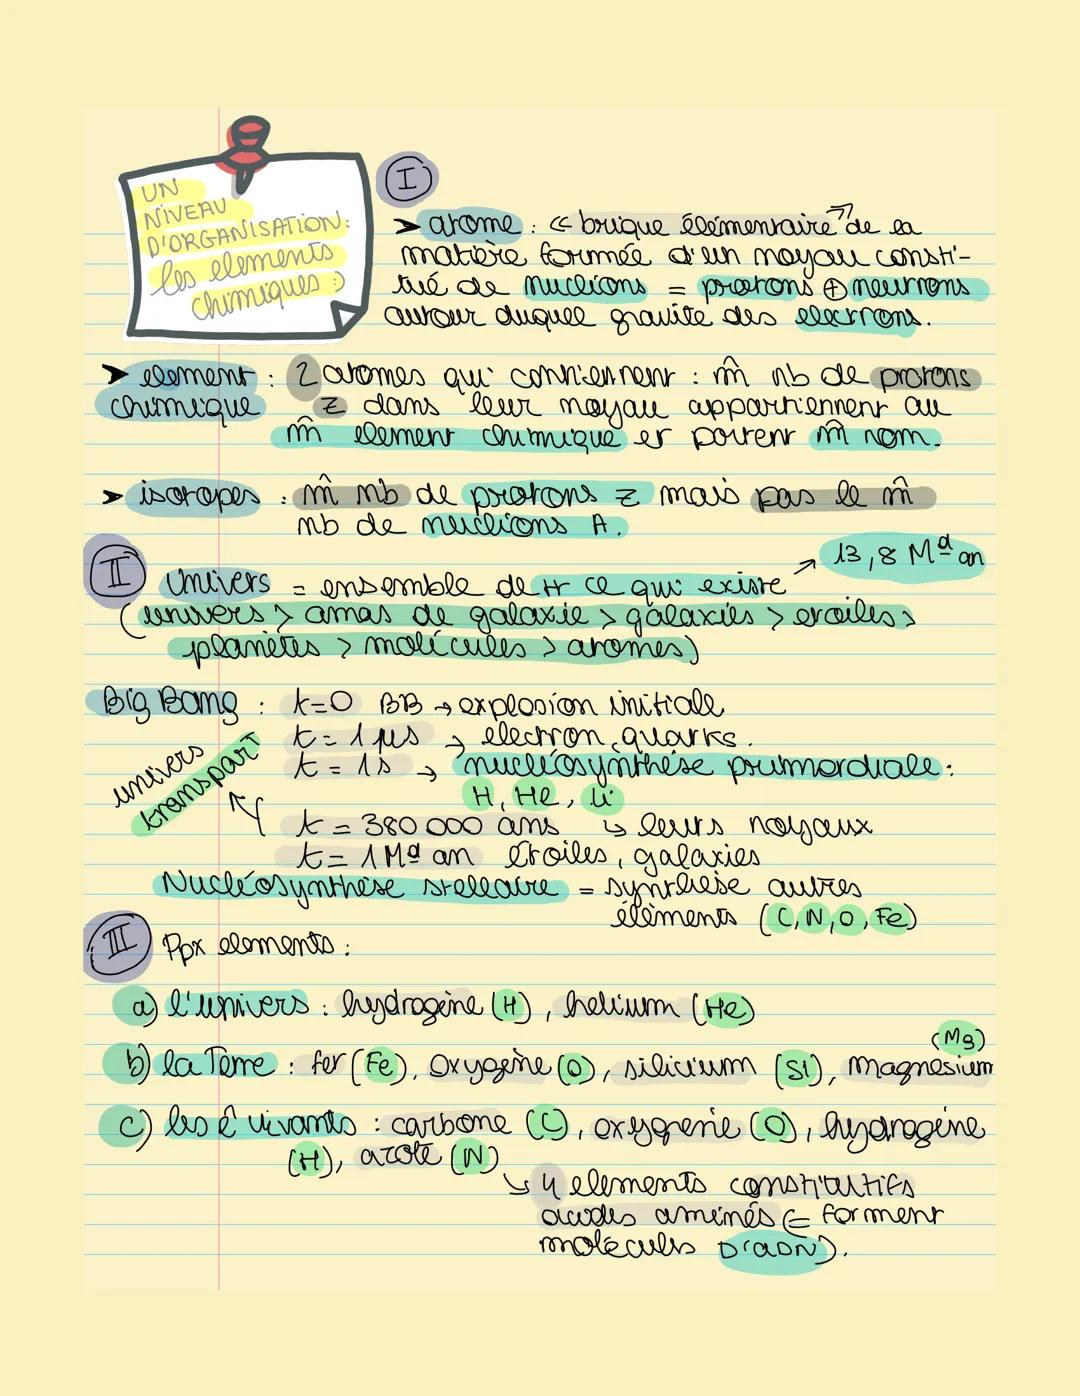 UN
NIVEAU
D'ORGANISATION:
les elements
chimiques :)
I
➤ atome : « brique élémentaire » de la
matière formée d'un noyau consti-
tué de nucléons = protons ⊕ neutrons
autour duquel gravite des electrons.
➤ element : 2 atomes qui contiennent : m̂ nb de protons
chimique Z dans leur noyau appartiennent au
m̂ element chimique et portent m̂ nom.
➤ isotopes : m̂ nb de protons Z mais pas le m̂
nb de nucléons A.
II Univers = ensemble de tt ce qui existe → 13,8 Mᵈ an
(univers > amas de galaxie > galaxies > etoiles >
planètes > molécules > atomes)
Big Bang : t=0 BB → explosion initiale
t = 1 µs → electron, quarks.
t = 1s → nucléosynthèse primordiale :
H, He, Li
univers
transpart
t = 380 000 ans ↳ leurs noyaux
t = 1 Mᵈ an étoiles, galaxies
Nucléosynthèse stellaire = synthèse autres
éléments (C, N, O, Fe)
III Ppx elements :
a) l'univers : hydrogène (H), helium (He)
(Mg)
b) la Terre : fer (Fe), oxygène (O), silicium (Si), magnésium
c) les ê vivants : carbone (C), oxygène (O), hydrogène
(H), azote (N)
↳ 4 elements constitutifs
acides aminés (= forment
molécules D'ADN).